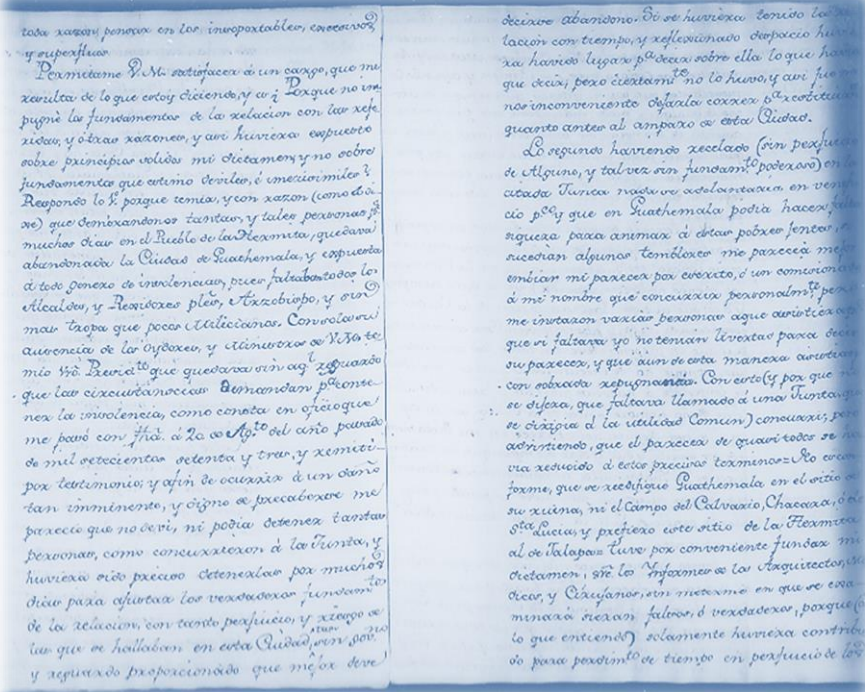 toda razon, pensar en los insoportables, excesivos,
y superfluos.
Permitame V. M. satisfacer á un cargo, que me
resulta de lo que estoy diciendo, y es ¿ Porque no im-
pugnè los fundamentos de la relacion con las refe-
ridas, y ótras razones, y asi huviera expuesto
sobre principios solidos mi dictamen, y no sobre
fundamentos que estimo deviles, é imverisimiles?
Respondo lo 1º porque temia, y con razon (como el ói-
se) que demorandonos tantas, y tales personas
muchos dias en el Pueblo de la Hermita, quedava
abandonada la Ciudad de Guathemala, y expuesta
á todo genero de insolencias, pues faltaban todos los
Alcaldes, y Rexidores, Arzobispo, y sin
mas tropa que pocos Milicianos. Con sola su
ausencia de los Oydores, y Ministros de V. M. te
mio Vrô. Presidte que quedava sin aql resguardo
que las circunstancias demandan pª conte-
ner la insolencia, como consta en oficio que
me pasó con fhâ. á 20 de Agto del año pasado
de mil setecientos setenta y tres, y remiti-
por testimonio; y afin de ocurrir á un daño
tan imminente, y digno de precaberse me
pareciò que no devi, ni podia detener tantas
personas, como concurrieron á la Junta, y
huviera sido preciso detenerlas por muchos
dias para apurar los verdaderos fundamtos
de la relacion, con tanto perjuicio, y riesgo de
las que se hallaban en esta Ciudad, sin
y resguardo proporcionado que mejor deve
decirse abandono. Si se huviera tenido la
lacion con tiempo, y reflexionado despacio
ra havido lugar pª decir sobre ella lo que
que decir; pero ciertamte no lo huvo, y asi fue
nos inconveniente dejarla correr pª
quanto antes al amparo de esta Ciudad.
Lo segundo haviendo recelado (sin perjuicio
de Alguno, y tal vez sin fundamto poderoso) en la
citada Junta nada se adelantaria en
cio pco y que en Guathemala podia hacer falta
siquiera para animar á estas pobres gentes,
sucedian algunos temblores me pareciá mejor
embiar mi parecer por escrito, ó un comisionado
á mi nombre que concurrir personalmte
me instaron varias personas aque asistiera
que si faltava yo no tenian livertad para decir
su parecer, y que aun de esta manera asistian
con sobrada repugnancia. Con esto (y por que
se dixera, que faltava llamado á una Junta, que
se dirigia á la utilidad Comun) concurri; pero
advirtiendo, que el parecer de quasi todos se
via reducido á estos precisos terminos = No
forme, que se reedifique Guathemala en el sitio de
su ruina, ni el Campo del Calvario, Chacara, ó
Sta Lucia, y prefiero este sitio de la Hermita
al de Jalapa = tuve por conveniente fundar mi
dictamen, sre los Ynformes de los Arquitectos,
dicos, y Cirujanos, sin meterme en que se exa-
minára sieran falsos, ó verdaderos, porque (
lo que entiendo) solamente huviera
do para perdimto de tiempo en perjuicio de los